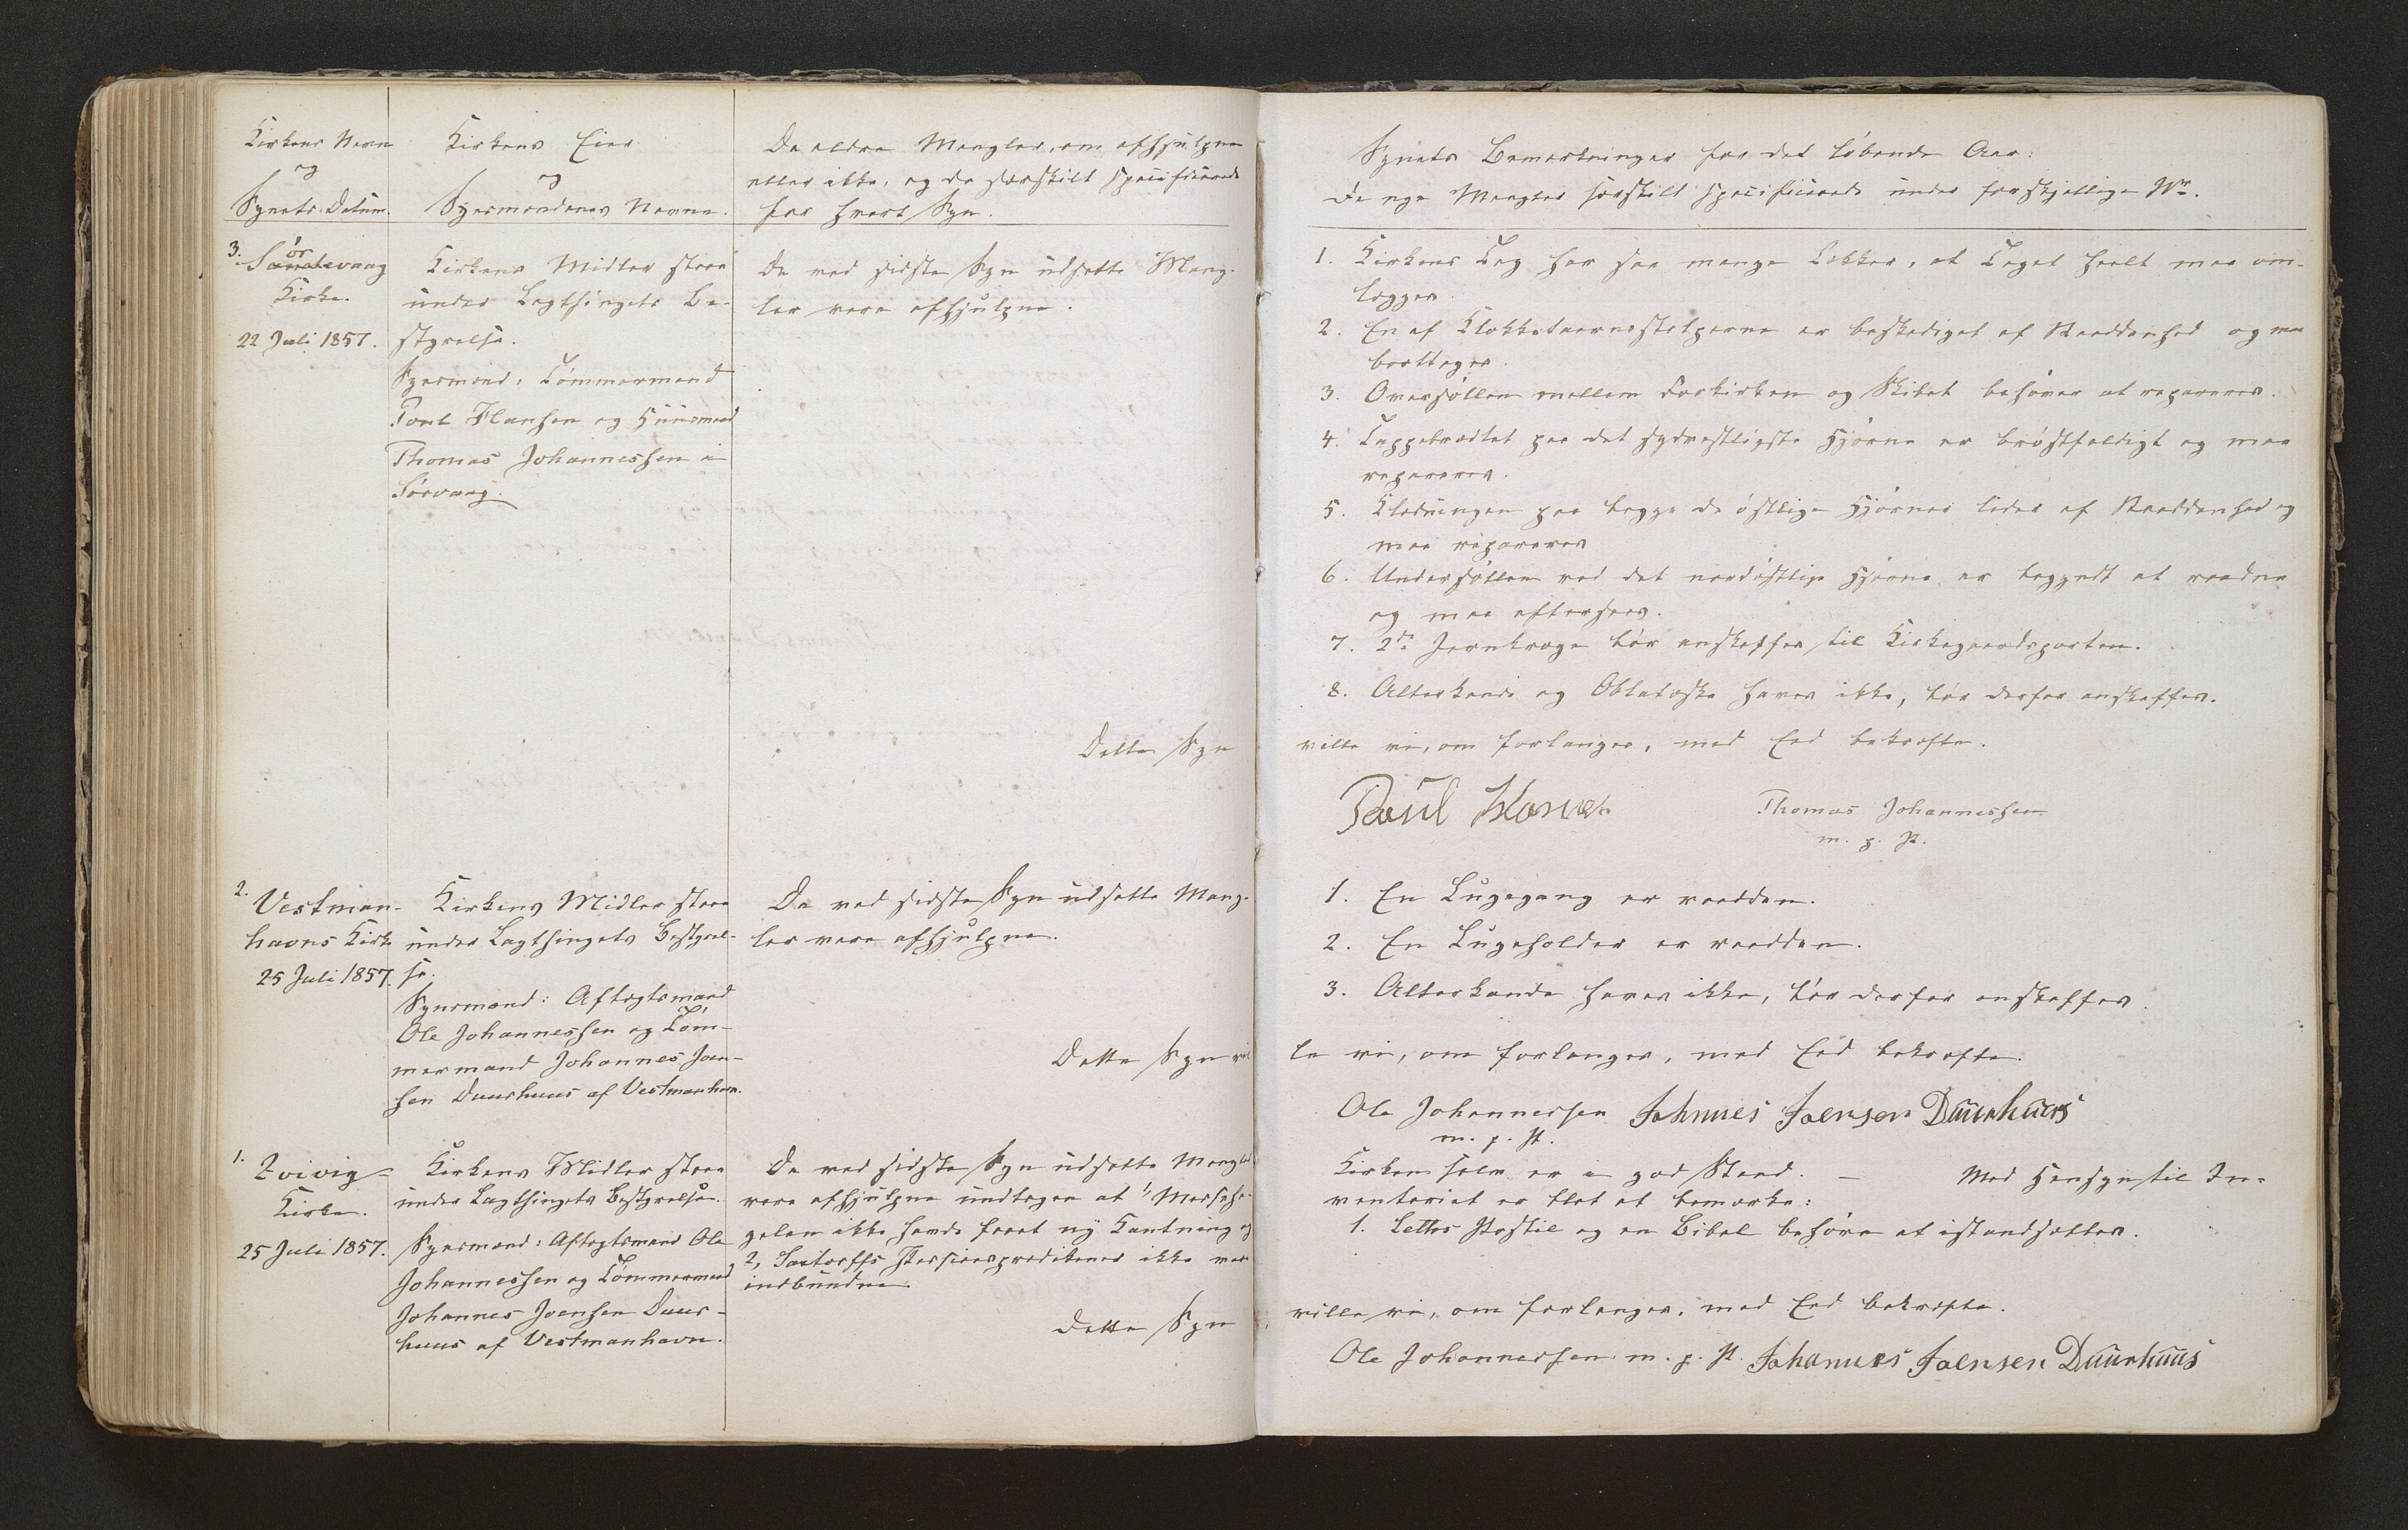 Kirkens Navn
og
Synets Datum.
Kirkens Eier
og
Synsmændenes Navne.
De ældre Mangler, om afhjulpne
eller ikke, og da særskilt specificerede
for hvert Syn.
3. Sørvaag
Kirke.
22 Juli 1857.
Kirkens Midler staae
under Lagthingets Be-
styrelse.
Synsmænd: Tømmermand
Poul Hansen og Huusmand
Thomas Johannessen i
Sørvaag.
De ved sidste Syn udsatte Mang-
ler vare afhjulpne.
Dette Syn
2. Vestman-
havns Kirke
25 Juli 1857.
Kirkens Midler staae
under Lagthingets Bestyrel-
se.
Synsmænd: Aftægtsmand
Ole Johannessen og Tøm-
mermand Johannes Joen-
sen Duurhuus af Vestmanhavn.
De ved sidste Syn udsatte Mang-
ler vare afhjulpne.
Dette Syn vil
1. Qvivig
Kirke.
25 Juli 1857.
Kirkens Midler staae
under Lagthingets Bestyrelse.
Synsmænd: Aftægtsmand Ole
Johannessen og Tømmermand
Johannes Joensen Duur-
huus af Vestmanhavn.
De ved sidste Syn udsatte Mangler
vare afhjulpne undtagen at 1, Messeha-
gelen ikke havde faaet ny Kantning og
2, ikke var
indbundne.
Dette Syn
Synets Bemærkninger for det løbende Aar:
De nye Mangler særskilt specificerede under forskjellige No.
1. Kirkens Tag har saa mange Lækker, at Taget heelt maa om-
lægges.
2. En af Klokketaarnsstolperne er beskadiget af Raaddenhed og maa
borttages.
3. Oversyllen mellem Forkirken og Skibet behøver at repareres.
4. Tappebrædtet paa det sydvestligste Hjørne er brøstfældigt og maa
repareres.
5. Klædningen paa begge de østlige Hjørner lider af Raaddenhed og
maa repareres
6. Undersyllen ved det nordøstlige Hjørne er begyndt at raadne
og maa eftersees.
7. 2de Jernkroge bør anskaffes til Kirkegaardsporten.
8. Alterkande og Oblatæske haves ikke, bør derfor anskaffes.
ville vi, om forlanges, med Eed bekræfte.
Poul Hansen
Thomas Johannessen
m. p. P.
1. En Lugegang er raadden.
2. En Lugeholder er raadden.
3. Alterkande haves ikke, bør derfor anskaffes.
le vi, om forlanges, med Eed bekræfte.
Ole Johannessen Johannes Joensen Duurhuus
m. p. P.
Kirken selv er i god Stand. — Med Hensyn til In-
ventariet er blot at bemærke:
1. Postil og en Bibel behøve at istandsættes.
ville vi, om forlanges, med Eed bekræfte.
Ole Johannessen m. p. P. Johannes Joensen Duurhuus